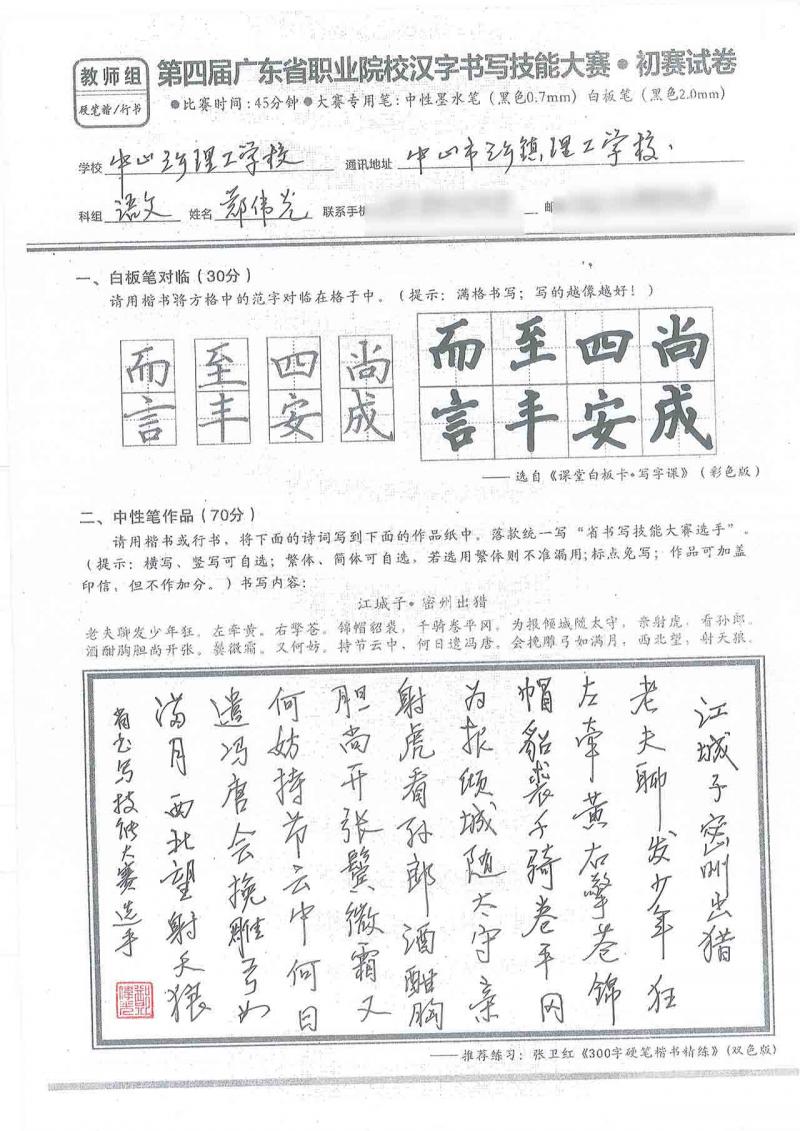 教师组
硬笔楷/行书
第四届广东省职业院校汉字书写技能大赛·初赛试卷
●比赛时间:45分钟●大赛专用笔:中性墨水笔(黑色0.7mm)白板笔(黑色2.0mm)
学校 中山 理工学校 通讯地址 中山市 镇理工学校、
科组 语文 姓名 郑伟光 联系手机 邮
一、白板笔对临(30分)
请用楷书将方格中的范字对临在格子中。(提示:满格书写;写的越像越好!)
而 至 四 尚 而 至 四 尚
言 丰 安 成 言 丰 安 成
——选自《课堂白板卡·写字课》(彩色版)
二、中性笔作品(70分)
请用楷书或行书,将下面的诗词写到下面的作品纸中。落款统一写“省书写技能大赛选手”。
(提示:横写、竖写可自选;繁体、简体可自选,若选用繁体则不准漏用;标点免写;作品可加盖
印信,但不作加分。)书写内容:
江城子·密州出猎
老夫聊发少年狂。左牵黄。右擎苍。锦帽貂裘,千骑卷平冈。为报倾城随太守,亲射虎,看孙郎。
酒酣胸胆尚开张。鬓微霜。又何妨。持节云中,何日遣冯唐。会挽雕弓如满月,西北望,射天狼。
江城子密州出猎
老夫聊发少年狂
左牵黄右擎苍锦
帽貂裘千骑卷平冈
为报倾城随太守亲
射虎看孙郎酒酣胸
胆尚开张鬓微霜又
何妨持节云中何日
遣冯唐会挽雕弓如
满月西北望射天狼
省书写技能大赛选手
——推荐练习:张卫红《300字硬笔楷书精练》(双色版)